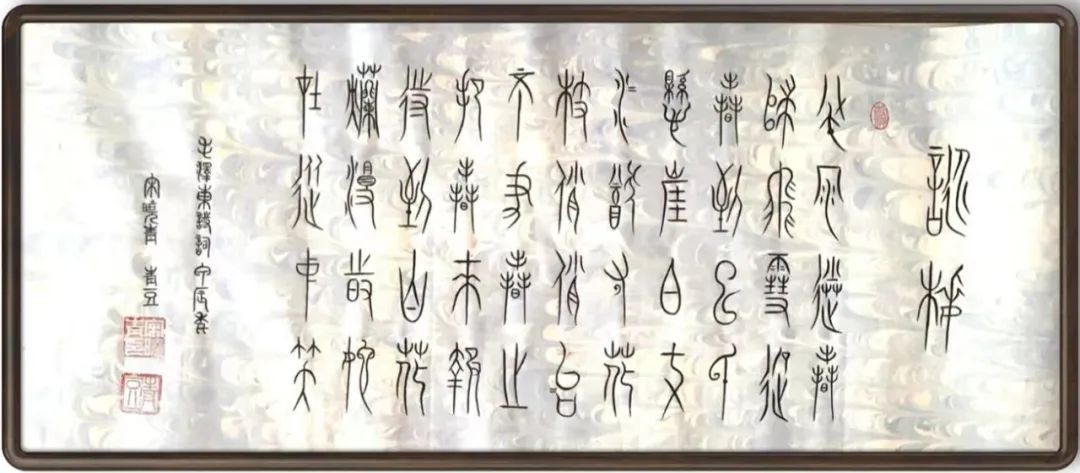 詠梅
風雨送春
歸飛雪迎
春到已是
懸崖百丈
冰猶有花
枝俏俏也
不爭春只
把春來報
待到山花
爛漫時她
在叢中笑
毛澤東詩詞甲辰春
宋曉青